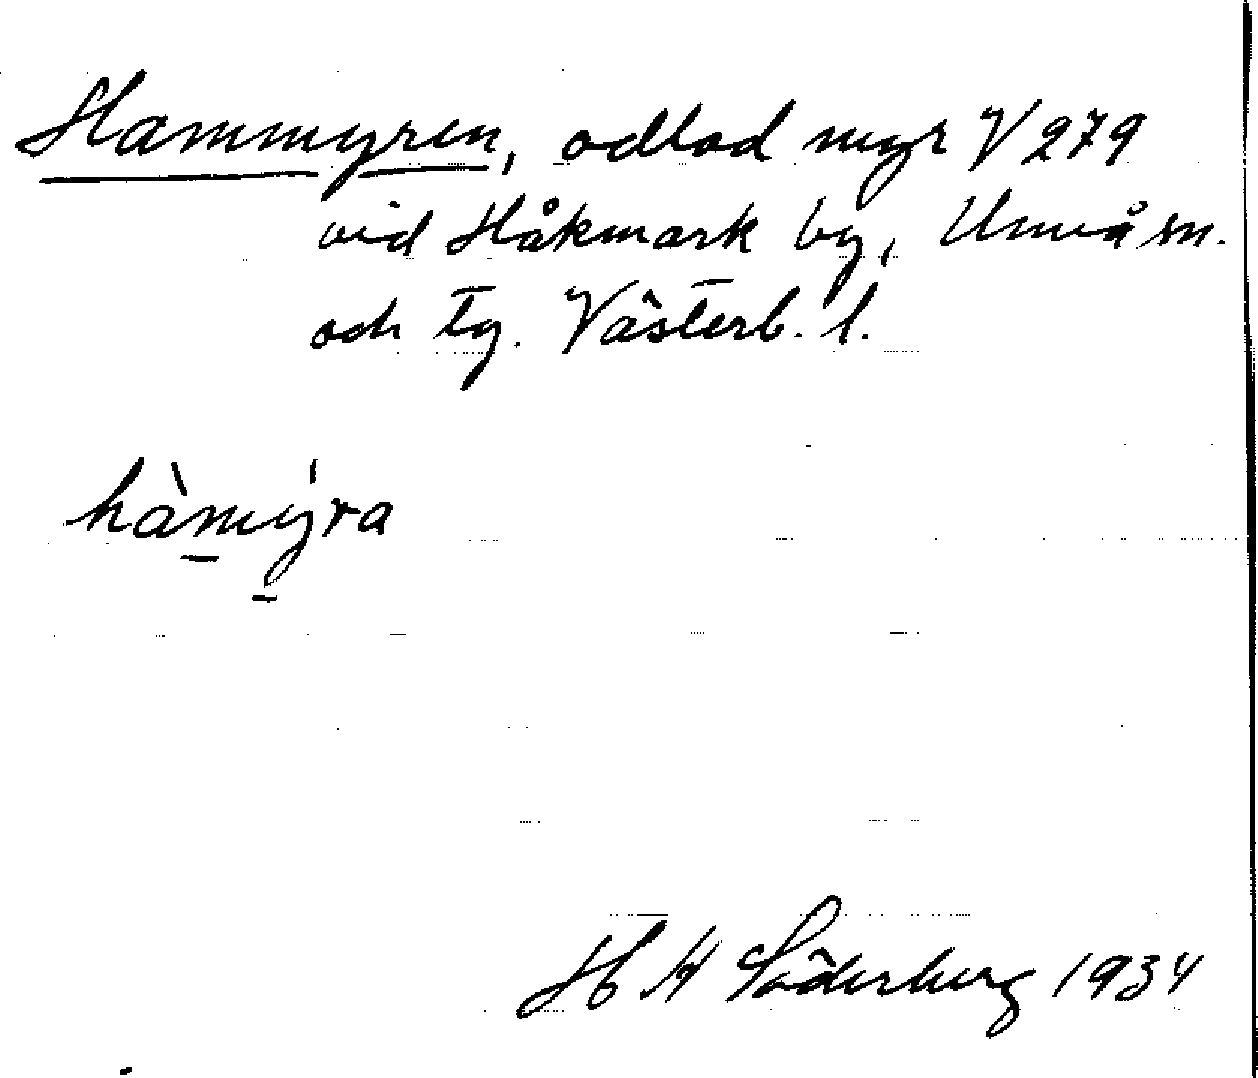 Hammyren, odlad myr V 279
vid Håkmark by, Umeå sn.
och tg. Västerb. l.
hàmýra
H Söderberg 1934